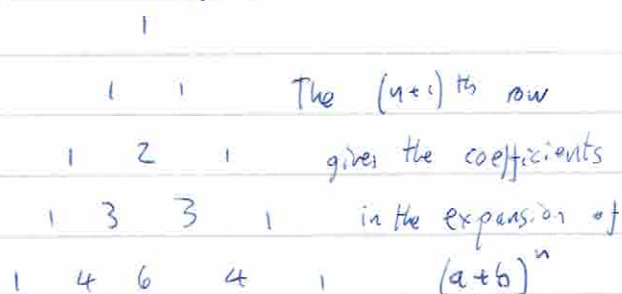 1
1 1 The (n+1)th row
1 2 1 gives the coefficients
1 3 3 1 in the expansion of
1 4 6 4 1 (a+b)^n